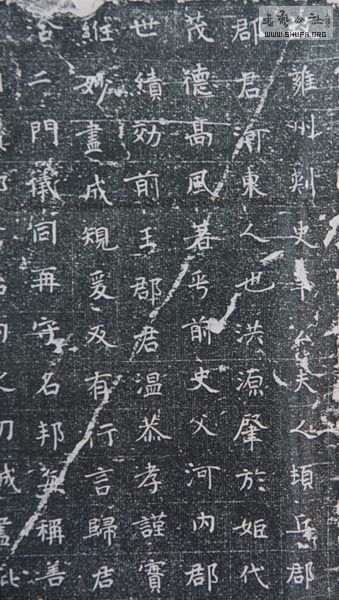 書藝公社
WWW.SHUFA.ORG
雍州刾史公夫人頓丘郡
郡君東人也洪源肇於姬代
茂德髙風著乎前史父河内郡
世績効前王郡君温恭孝謹實
盡成規爰及有行言歸君
二門儀同再守名邦並稱善